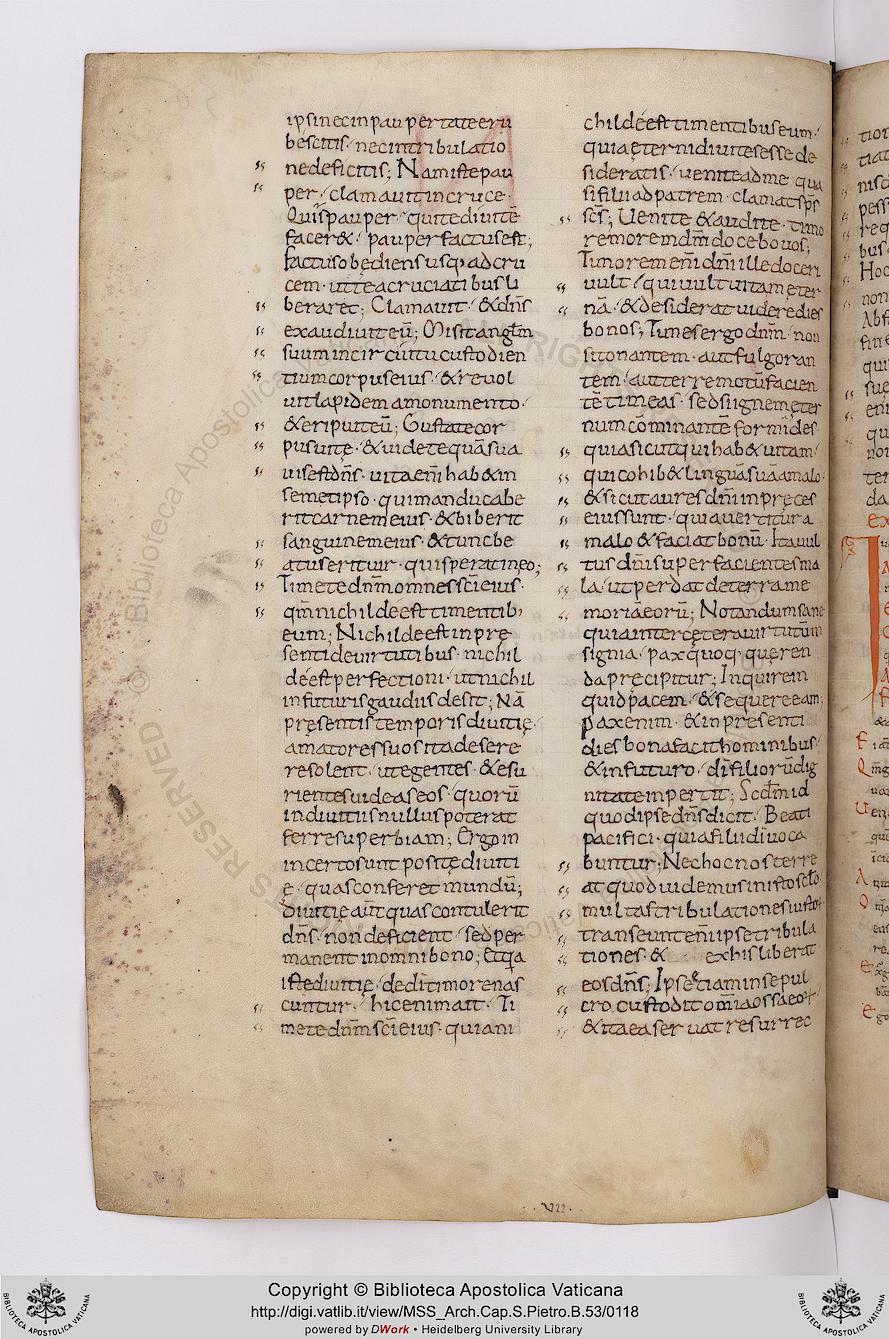 ipsi nec in paupertate eru
bescitis· nec in tribulatio
ne deficitis; Nam iste pau
per· clamavit in cruce·
Quis pauper· qui te divitē
facer&· pauper factus est;
factus obediens usq; ad cru
cem· ut te a cruciatibus li
beraret; Clamavit· & dn̄s
exaudivit eū; Misit anglm̄
suum in circuitu custodien
tium corpus eius· & revol
vit lapidem a monumento·
& eripuit eū; Gustate cor
pus vitę· & videte quā sua
vis est dn̄s· vita eni̅ hab& in
semetipso· qui manducabe
rit carnem eius· & biberit
sanguinem eius· & tunc be
atus eritur· qui sperat in eo;
Timete dnm̄ omnes sc̄i eius·
qm̄ nichil deest timentib;
eum; Nichil deest in prę
senti de virtutibus· nichil
deest perfectioni· ut nichil
in futuris gaudiis desit; Nā
pręsentis temporis divitię·
amatores suos ita desere
re solent· ut egentes· & esu
rientes videas eos· quorū
in divitiis nullus poterat
ferre superbiam; Ergo in
incerto sunt positę diviti
ę· quas confer et mundū;
Divitię aūt quas contulerit
dn̄s· non deficient· sed per
manent in omni bono; Et q̄a
istę divitię· dedi timore nas
cuntur· hic enim ait· Ti
mete dnm̄ sc̄i eius· quia ni
chil deest timentibus eum·
quia ęterni divites esse de
sideratis· venite ad me qua
si filii ad patrem· clamat sp̄s
sc̄s; Venite & audite· timo
rem orem dnī docebo vos;
Timorem eni̅ dn̄i ille doceri
vult· qui vult vitam ęter
nā· & desiderat videre dies
bonos; Times ergo dnm̄· non
si tonantem· aut fulgoran
tem· aut terremotū facien
tē timeas· sed si ignem ęter
num cominantē formides·
quia sicut qui hab& vitam·
qui cohib& linguā suā a malo·
& sicut aures dn̄i in pręces
eius sunt· qui avertitur a
malo & faciat bonū· Ita vul
tus dn̄i super facientes ma
la· ut perdat de terra me
moriā eorū; Notandum sane
quia inter cętera virtutum
signia· pax quoq; queren
da pręcipitur; Inquirein
quid pacem· & sequere eam·
Pax enim· & in presenti
dies bona facit hominibus·
& in futuro· dī filiorū dig
nitate impertit; Scdm̄ id
quod ipse dn̄s dicit· Beati
pacifici· quia filii dī voca
buntur; Nec hoc nos terre
at quod videmus in isto sclo
multas tribulationes iustor
transeunt eni̅ ipsę tribula
tiones· & ex his liberat
eos dn̄s; Ipse etiam in sepul
cro custodit om̄ia ossa eor
& ita ea servat resurrec
·VII·
Copyright © Biblioteca Apostolica Vaticana
http://digi.vatlib.it/view/MSS_Arch.Cap.S.Pietro.B.53/0118
powered by DWork • Heidelberg University Library